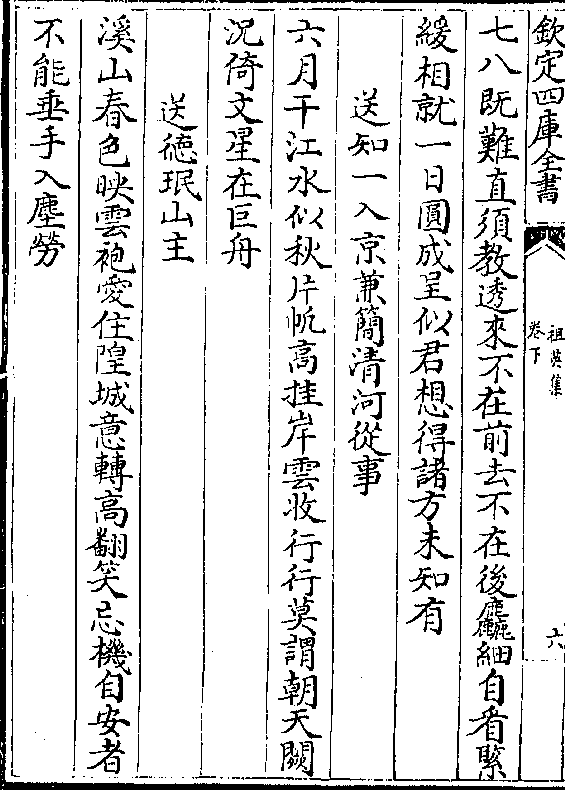 欽定四庫全書
祖英集
卷下
六
七八既難直須教透來不在前去不在後麤細自看緊
緩相就一日圓成呈似君想得諸方未知有
送知一入京兼簡清河從事
六月千江水似秋片帆高挂岸雲收行行莫謂朝天闕
況倚文星在巨舟
送德珉山主
溪山春色映雲袍愛住隍城意轉高翻笑忘機自安者
不能垂手入塵勞